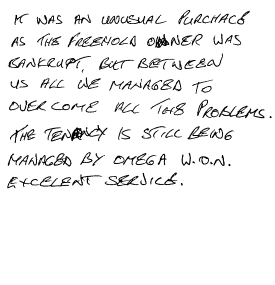 IT WAS AN UNUSUAL PURCHASE
AS THE FREEHOLD OWNER WAS
BANKRUPT, BUT BETWEEN
US ALL WE MANAGED TO
OVERCOME ALL THE PROBLEMS.
THE TENANCY IS STILL BEING
MANAGED BY OMEGA W.O.N.
EXCELENT SERVICE.